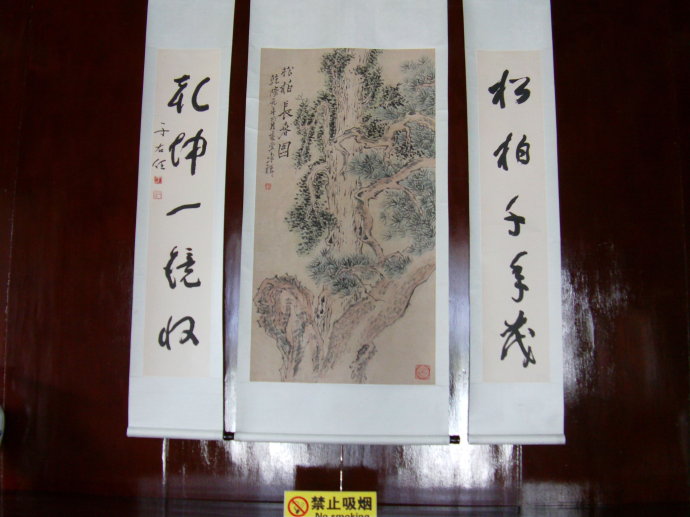 松柏千年茂
松柏長春圖
乾坤一镜收
于右任
禁止吸烟
No smoking